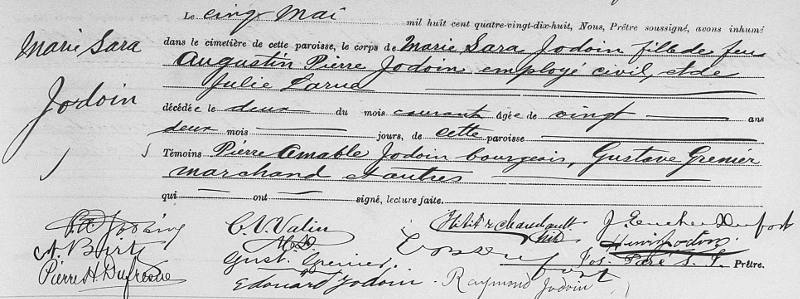 Le cinq Mai mil huit cent quatre-vingt-dix-huit, Nous, Prêtre soussigné, avons inhumé
Marie Sara
Jodoin
dans le cimetière de cette paroisse, le corps de Marie Sara Jodoin fille de feu
Augustin Pierre Jodoin employé civil, et de
Julie Larue
décédée le deux du mois courant âgée de vingt ans
deux mois jours, de cette paroisse
Témoins Pierre Amable Jodoin bourgeois, Gustave Grenier
marchand et autres
qui ont signé, lecture faite.
C. N. Valin
Pierre A. Dufresne
Gust. Grenier
Edouard Jodoin
Raymond Jodoin
Jos. Paré Prêtre.